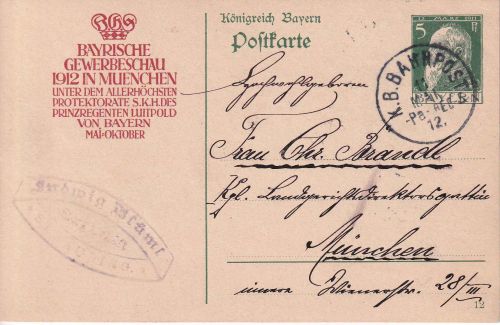 BAYRISCHE
GEWERBESCHAU
1912 IN MUENCHEN
UNTER DEM ALLERHÖCHSTEN
PROTEKTORATE S.K.H. DES
PRINZREGENTEN LUITPOLD
VON BAYERN
MAI-OKTOBER
Königreich Bayern
Postkarte
12. MÄRZ 1911
5 Pf
BAYERN
K.B. BAHNPOST
12.
Hochwohlgeboren
Frau Chr. Brandl
Kgl. Landgerichtsdirektorsgattin
München
innere Wienerstr. 28/III
Ludwig
12